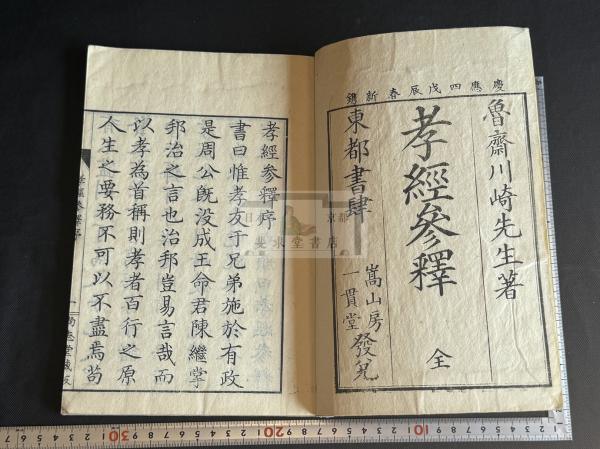 慶應四戊辰春新鐫
魯齋川崎先生著
孝經參釋
全
東都書肆
嵩山房
一貫堂
發兌
孝經參釋序
書曰惟孝友于兄弟施於有政
是周公旣没成王命君陳繼掌
邦治之言也治邦豈易言哉而
以孝為首稱則孝者百行之原
人生之要務不可以不盡焉苟
孝經參釋序
一
日本
京都
書店
30
20
10